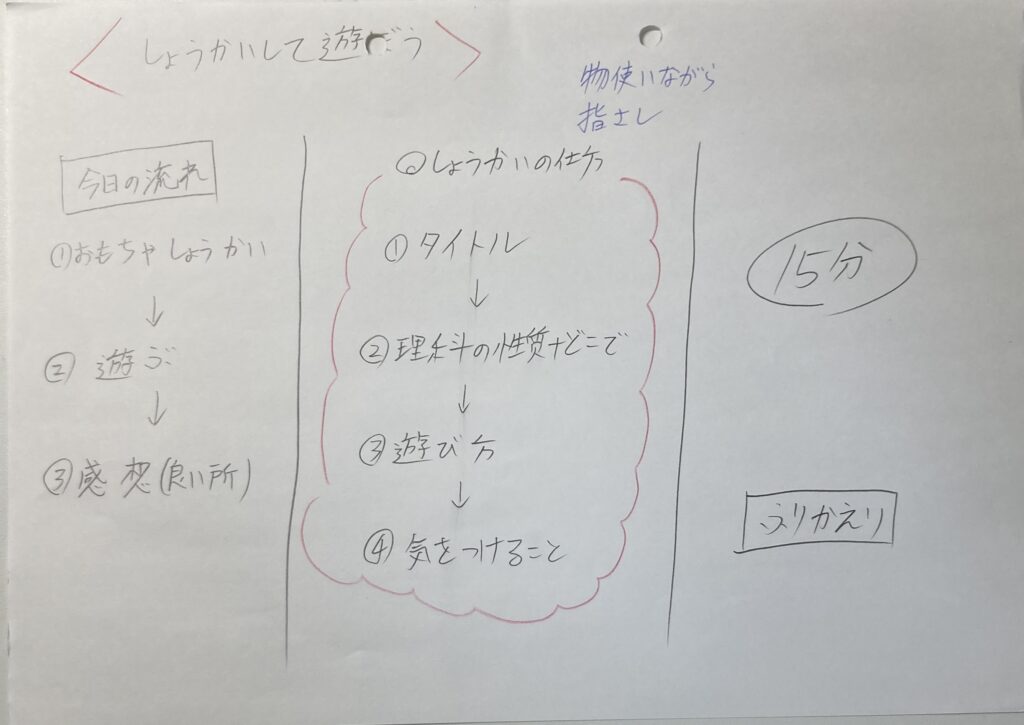 しょうかいして遊ぼう
物使いながら
指さし
今日の流れ
①おもちゃしょうかい
↓
② 遊ぶ
↓
③感想(良い所)
○しょうかいの仕方
①タイトル
↓
②理科の性質+どこで
↓
③遊び方
↓
④気をつけること
15分
ふりかえり